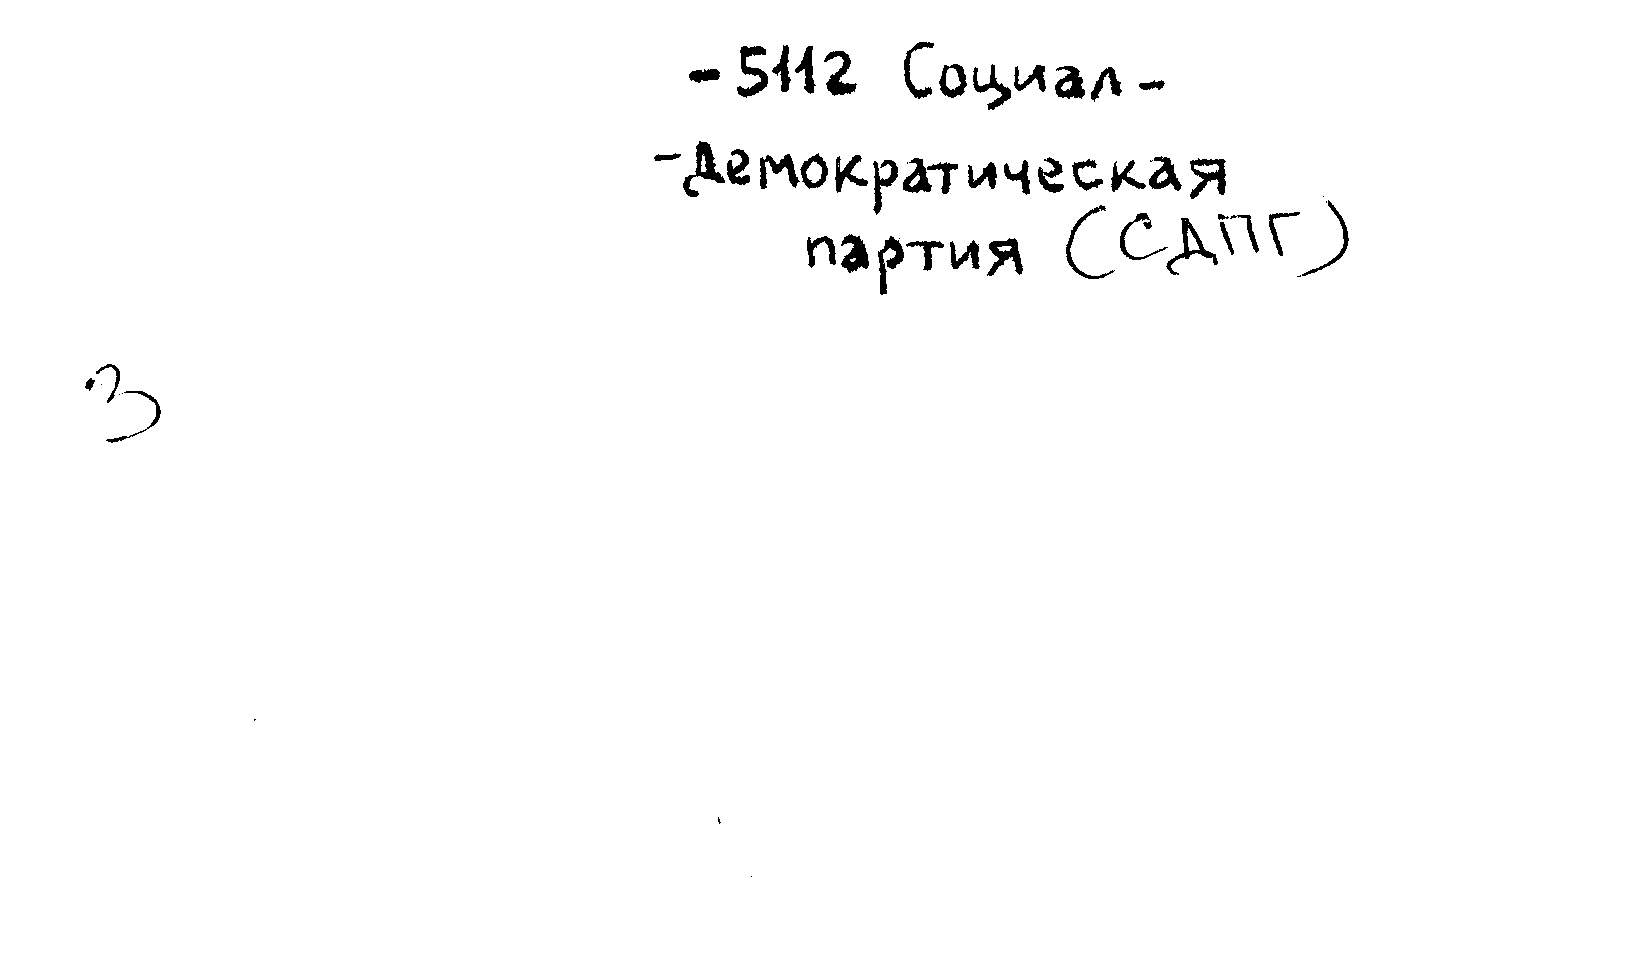 -5112 Социал-
-Демократическая
партия (СДПГ)
3